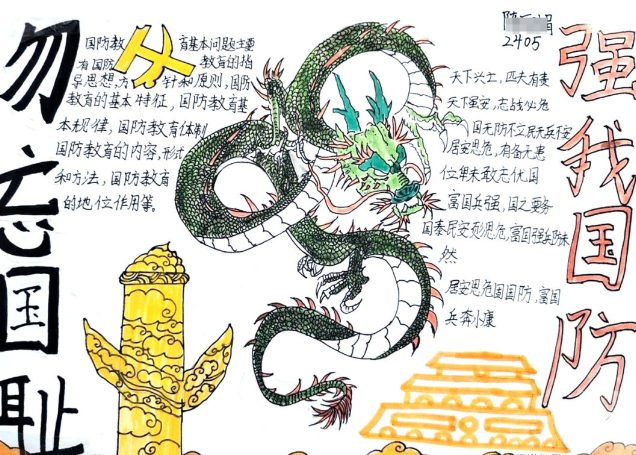 勿忘国耻
国防教育基本问题主要
有国防教育的指
导思想,方针和原则,国防
教育的基本特征,国防教育基
本规律,国防教育体制
国防教育的内容,形式
和方法,国防教育
的地位作用等。
2405
天下兴亡,匹夫有责
天下虽安,忘战必危
国无防不立民无兵不安
居安思危,有备无患
位卑未敢忘忧国
富国兵强,国之要务
国泰民安
居安思危固国防,富国
兵奔小康
强我国防